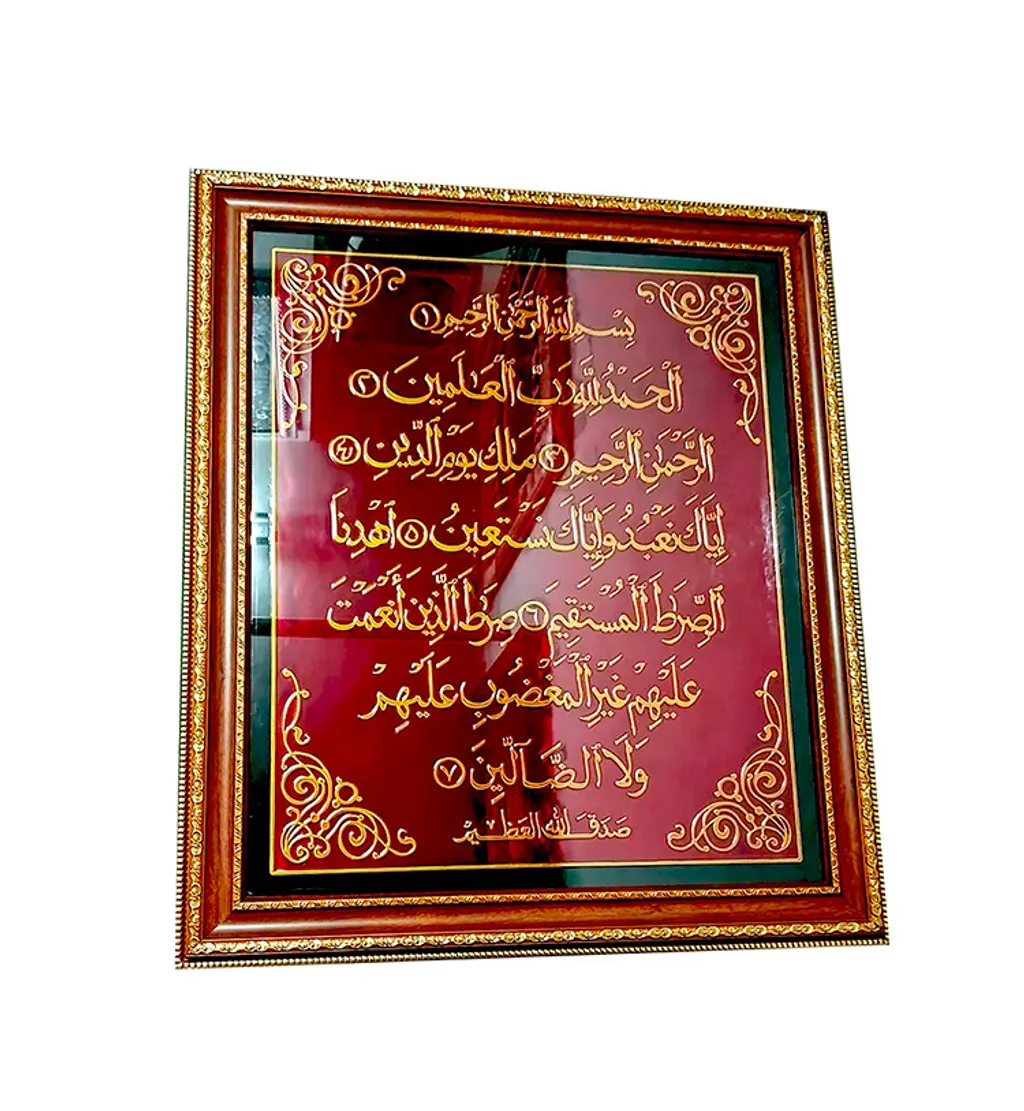 بِسْمِ اللَّهِ الرَّحْمَٰنِ الرَّحِيمِ ۝١
ٱلْحَمْدُ لِلَّهِ رَبِّ ٱلْعَـٰلَمِينَ ۝٢
ٱلرَّحْمَـٰنِ ٱلرَّحِيمِ ۝٣ مَـٰلِكِ يَوْمِ ٱلدِّينِ ۝٤
إِيَّاكَ نَعْبُدُ وَإِيَّاكَ نَسْتَعِينُ ۝٥ ٱهْدِنَا
ٱلصِّرَٰطَ ٱلْمُسْتَقِيمَ ۝٦ صِرَٰطَ ٱلَّذِينَ أَنْعَمْتَ
عَلَيْهِمْ غَيْرِ ٱلْمَغْضُوبِ عَلَيْهِمْ
وَلَا ٱلضَّآلِّينَ ۝٧
صدق الله العظيم